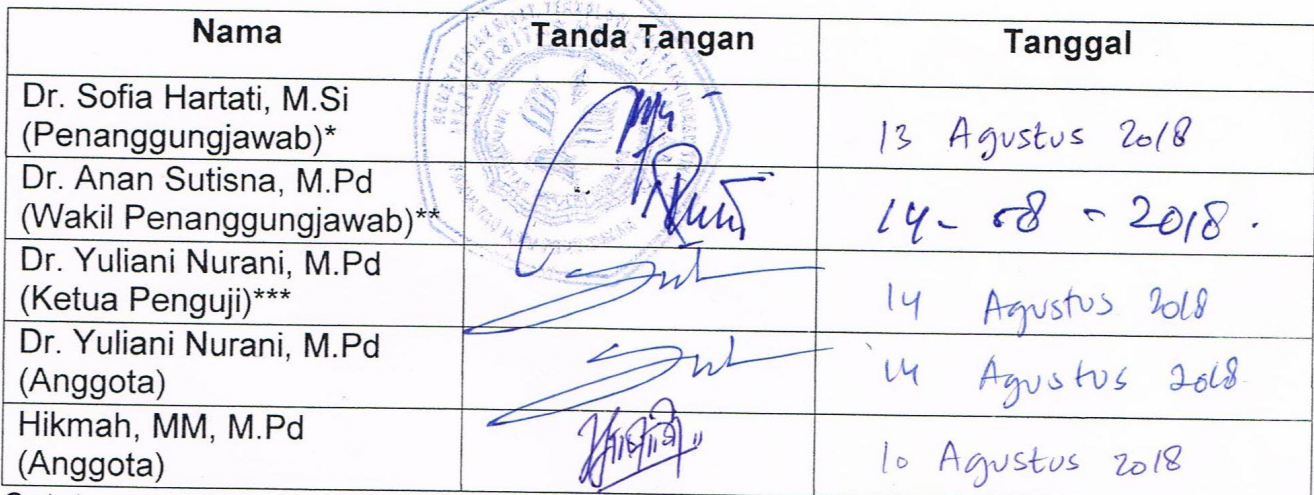 Nama Tanda Tangan Tanggal
Dr. Sofia Hartati, M.Si
(Penanggungjawab)* 13 Agustus 2018
Dr. Anan Sutisna, M.Pd
(Wakil Penanggungjawab)** 14 - 08 - 2018.
Dr. Yuliani Nurani, M.Pd
(Ketua Penguji)*** 14 Agustus 2018
Dr. Yuliani Nurani, M.Pd
(Anggota) 14 Agustus 2018
Hikmah, MM, M.Pd
(Anggota) 10 Agustus 2018